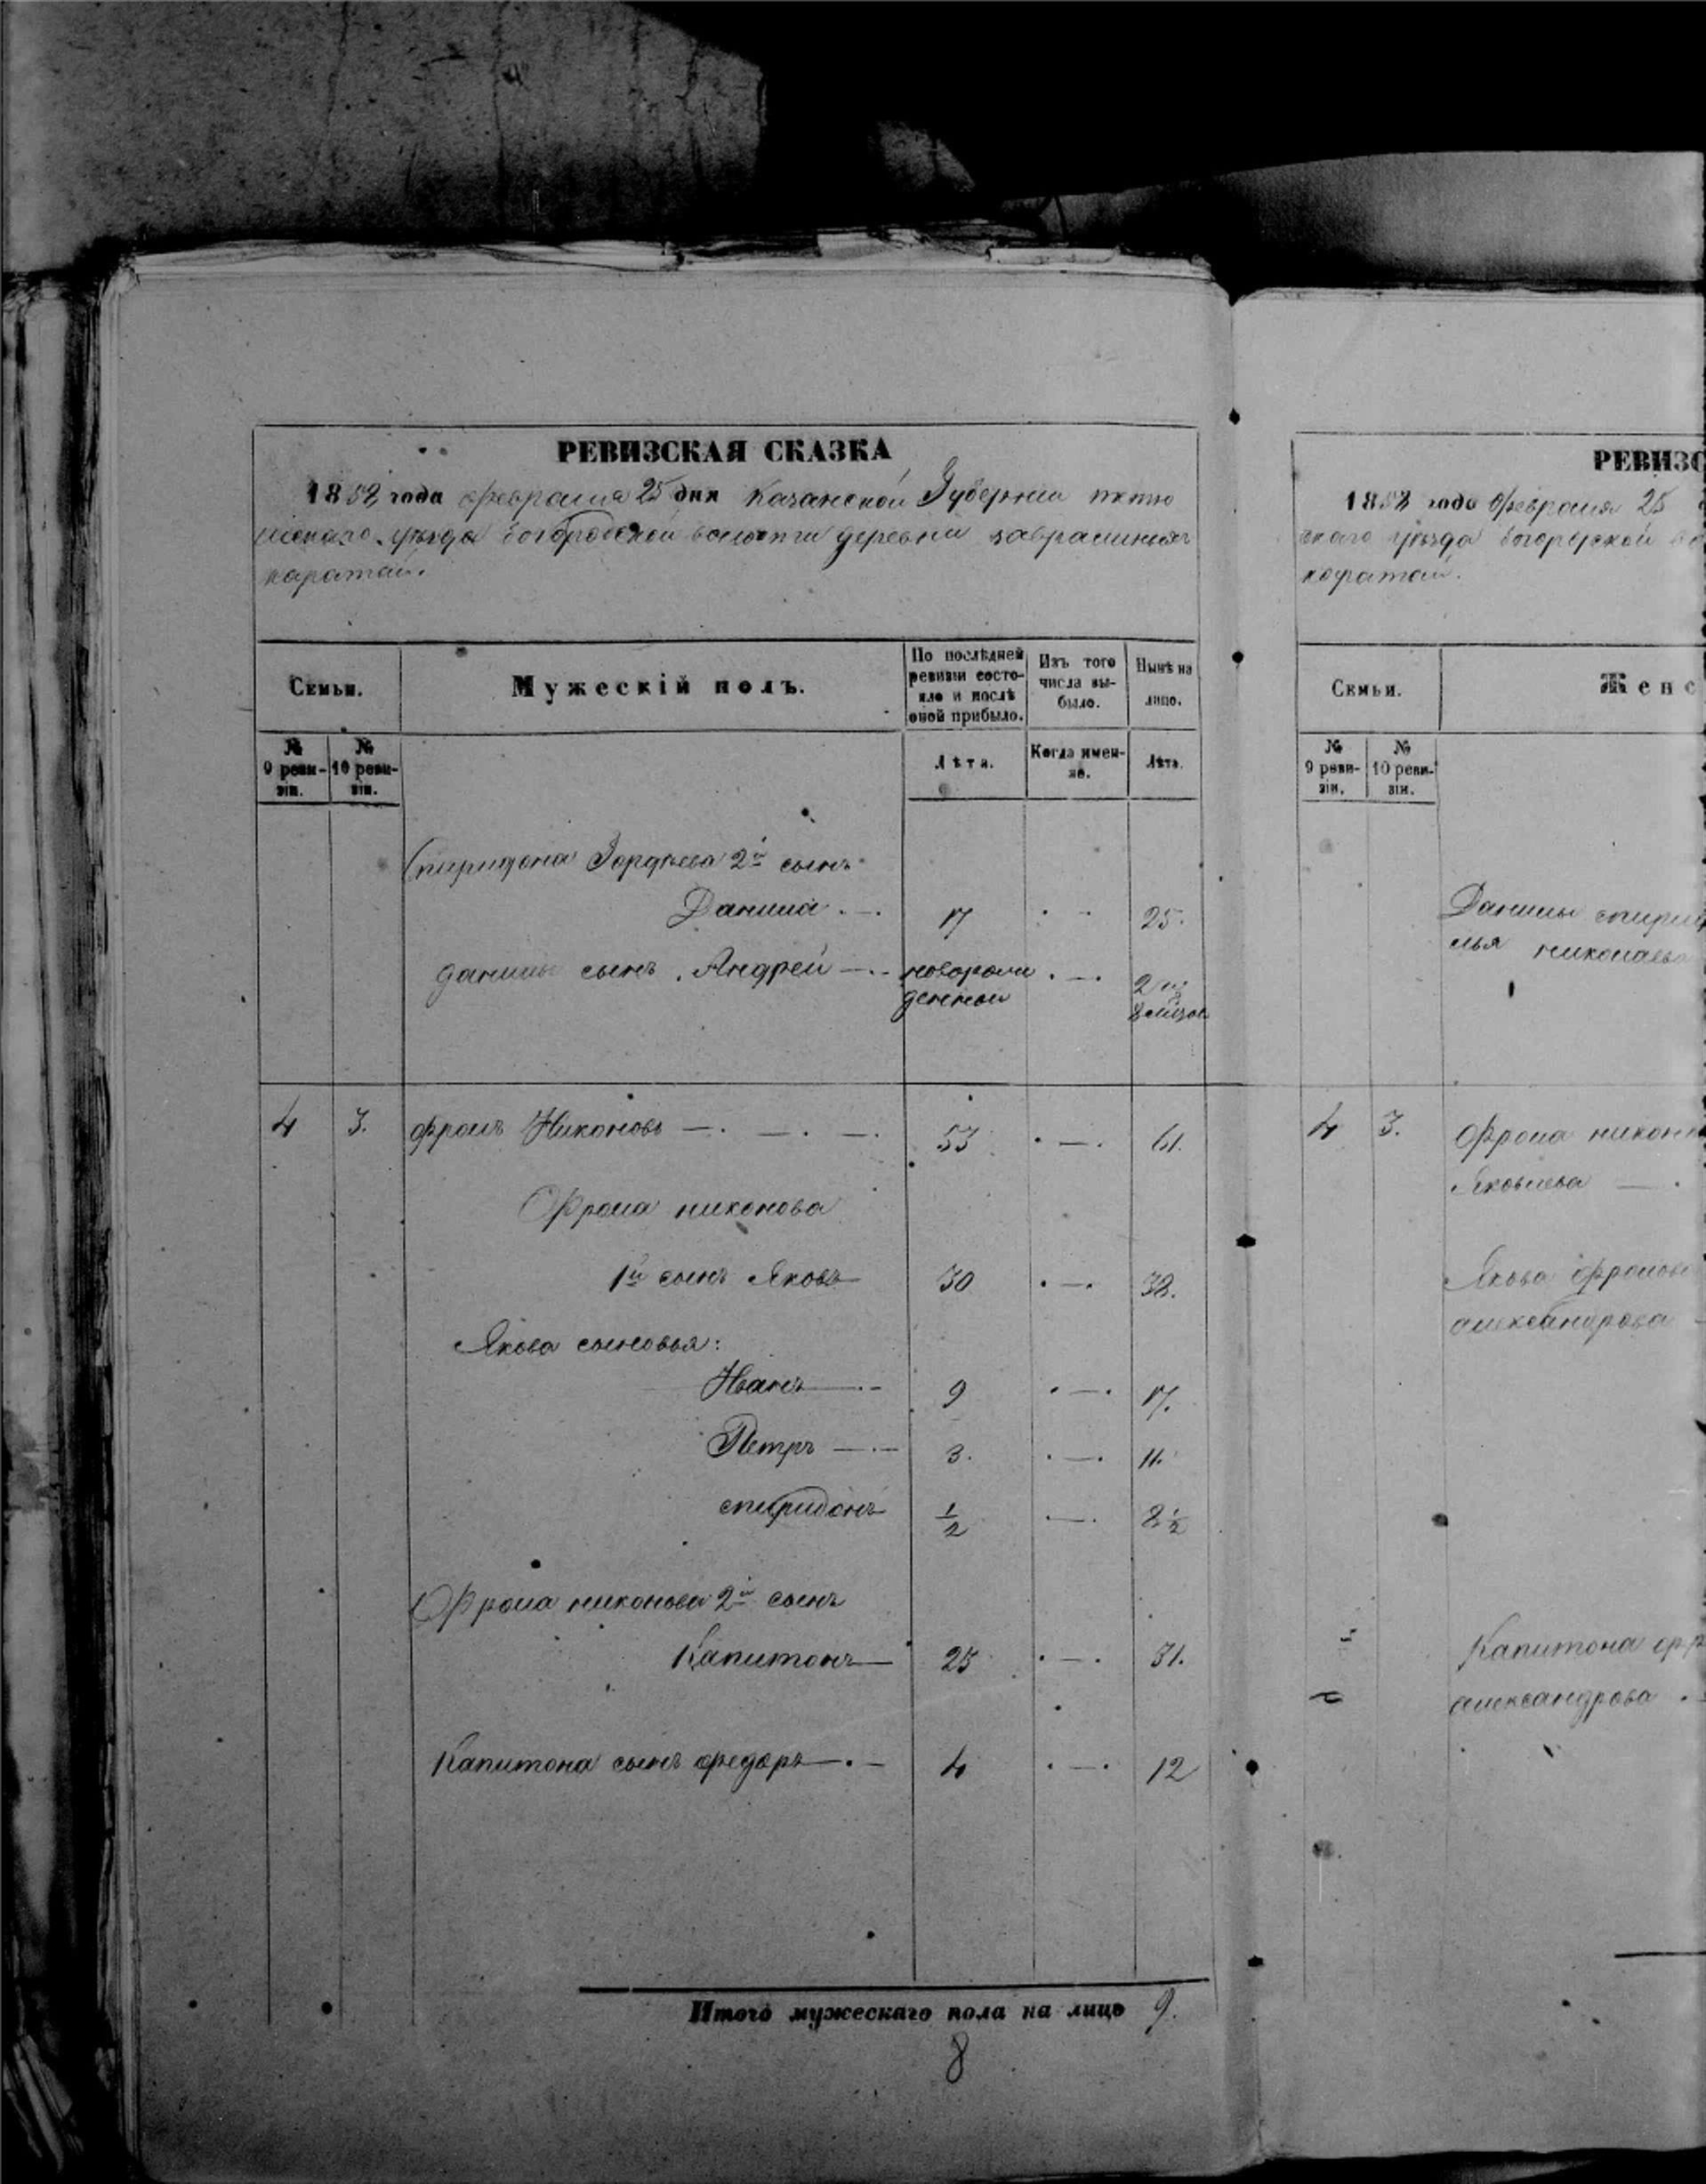 РЕВИЗСКАЯ СКАЗКА
1858 года февраля 25 дня Казанской Губернiи тетю
шскаго уѣзда Богородской волости деревни
каратай.
Семьи.
Мужескiй полъ.
По послѣдней ревизiи состояло и послѣ оной прибыло.
Изъ того числа выбыло.
Нынѣ на лицо.
№ 9 ревизiи.
№ 10 ревизiи.
Лѣта.
Когда именно.
Лѣта.
Спиридона Гордѣева 2й сынъ
Данила 17 25.
данилы сынъ Андрей новорож
денной 2
4 3. фролъ Никоновъ 53 61.
Фрола никонова
1й сынъ Яковъ 30 38.
Якова сыновья:
Иванъ 9 17.
Петръ 3. 11.
спиридонъ 1/2 8 1/2
Фрола никонова 2й сынъ
Капитонъ 25 31.
Капитона сынъ федоръ 4 12
Итого мужескаго пола на лицо 9.
8
РЕВИЗС
1858 года февраля 25
скаго уѣзда
каратай.
Семьи.
Женс
№ 9 ревизiи.
№ 10 ревизiи.
Данилы спирид
николаева
4 3. Фрола никон
Яковлева
Якова фролов
александрова
Капитона фр
александрова